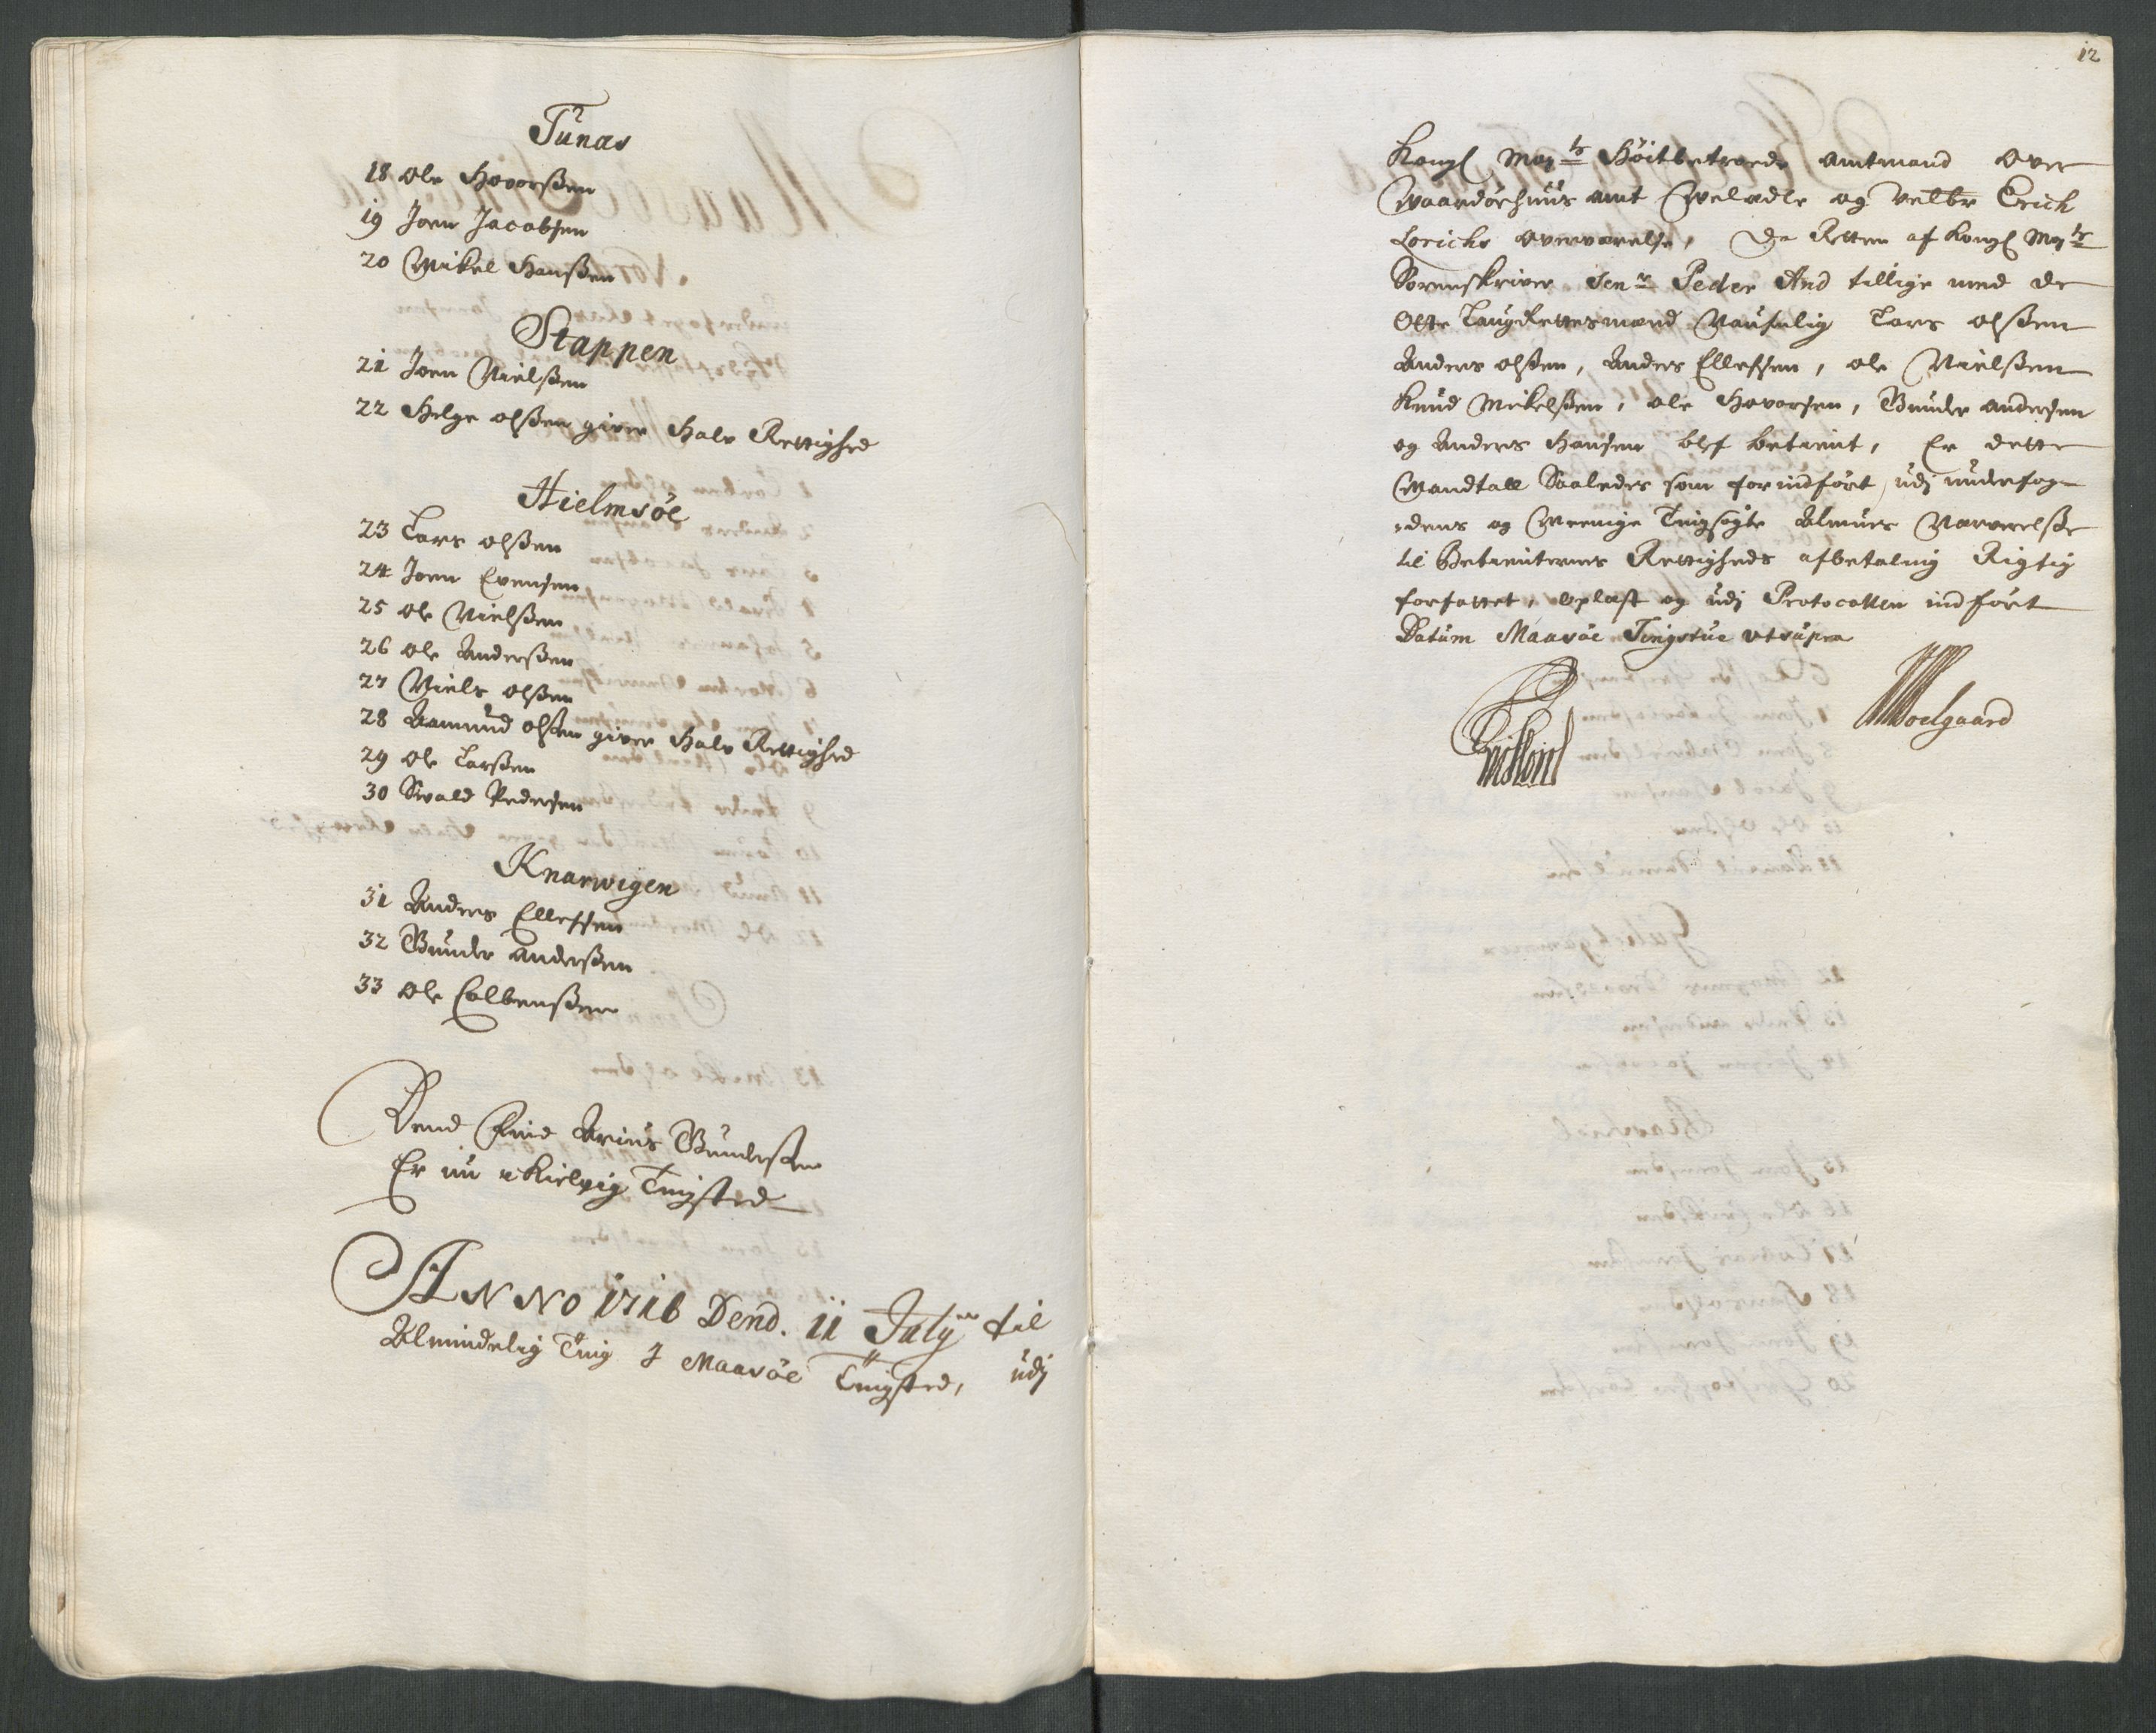 Tunas
18 Ole Hovorßen
19 Joen Jacobsen
20 Mikel Hanßen
Stappen
21 Joen Nielßen
22 Helge olßen giver Halv Rettighed
Hielmsöe
23 Lars olßen
24 Joen Evensen
25 Ole Nielßen
26 Ole Anderßen
27 Niels olßen
28 Aamund olßen giver Halv Rettighed
29 Ole Larßen
30 Sivald Pedersen
Knarwigen
31 Anders Ellefsen
32 Gunder anderßen
33 Ole Colbenßen
Dend Arius Gunderßen
Er nu i Kielvig Tingsted
ANNO 1716 Dend. 11 July til
Almindelig Ting I Maasöe Tingsted, udj
12
Kongl Maytz Höitbetroede Amtmand over
Waardöehuus amt Welædle og Velbr Erich
Lorichs overværelse, Da Retten af Kongl Maytz
Sorenskriver Senr Peder And tillige med de
Otte Laugrettesmænd Naufnlig Lars olßen
Anders olßen, Anders Ellefsen, ole Nielßen
Knud Mikelßen, ole Hovorsen, Gunder andersen
og Anders Hansen blef betient, Er dette
Mandtall Saaledes som forindfört, udj underfog-
-dens og Meenige Tingsögte Almues Nærverelße
til Betienternes Rettigheds afbetaling Rigtig
forfattet, oplæst og udj Protocollen indfört
Datum Maasöe Tingstue utsupra